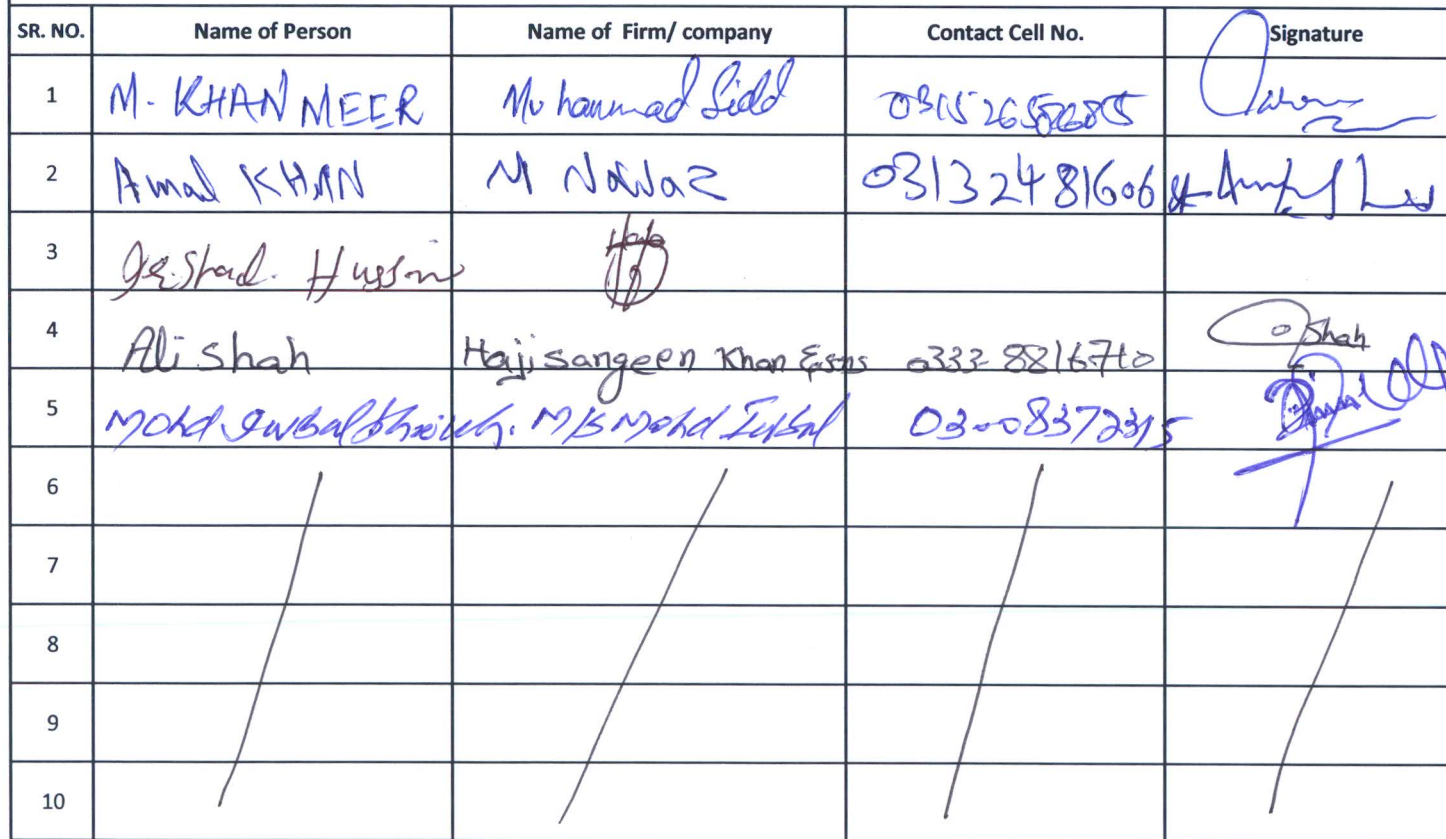 SR. NO. Name of Person Name of Firm/ company Contact Cell No. Signature
1 M. KHAN MEER Muhammad
2 Amal KHAN M Nawaz 03132481606
3 Hussain
4 Ali Shah Haji sangeen Khan & sons 0333-8816710 Shah
5 Mohd M/S Mohd Iqbal 03008372315
6
7
8
9
10